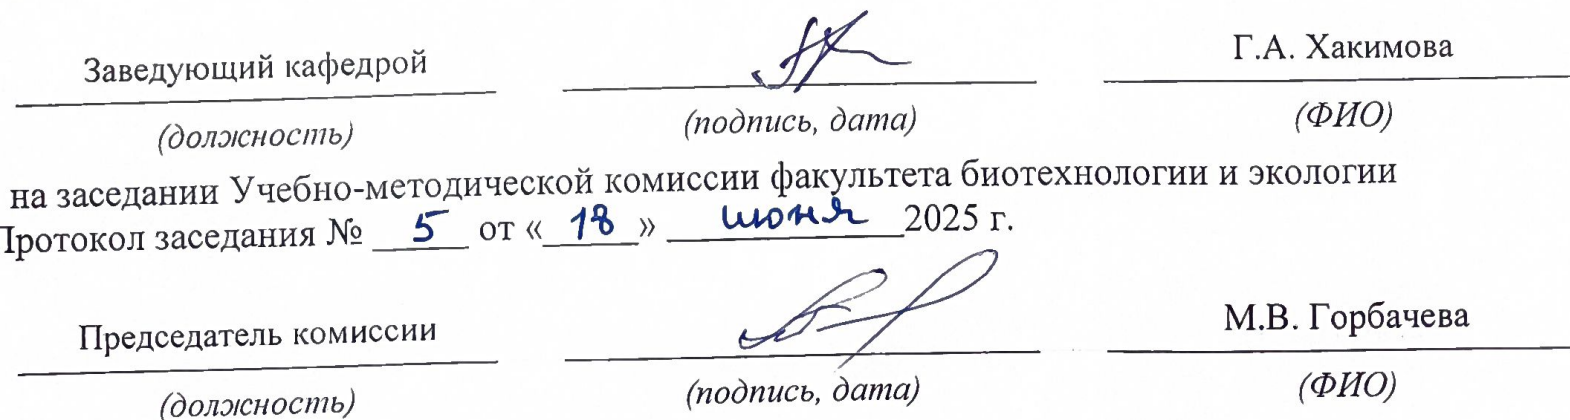 Заведующий кафедрой Г.А. Хакимова
(должность) (подпись, дата) (ФИО)
на заседании Учебно-методической комиссии факультета биотехнологии и экологии
Протокол заседания № 5 от «18» июня 2025 г.
Председатель комиссии М.В. Горбачева
(должность) (подпись, дата) (ФИО)